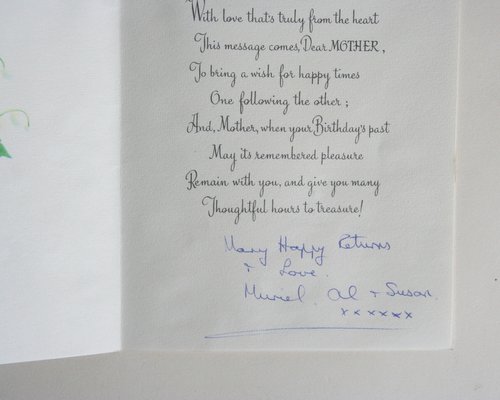 With love that's truly from the heart
This message comes, Dear MOTHER,
To bring a wish for happy times
One following the other;
And, Mother, when your Birthday's past
May its remembered pleasure
Remain with you, and give you many
Thoughtful hours to treasure!
Many Happy Returns
+ Love.
Muriel. Al + Susan.
xxxxxx